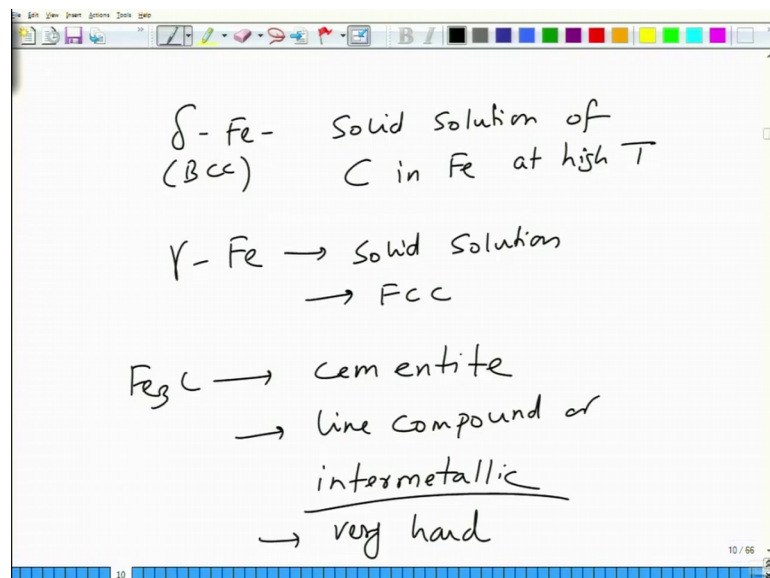 File Edit View Insert Actions Tools Help
B I
δ - Fe - Solid solution of
(BCC) C in Fe at high T
γ - Fe → solid solution
→ FCC
Fe3C → cementite
→ line compound or
intermetallic
→ very hard
10 / 66
10